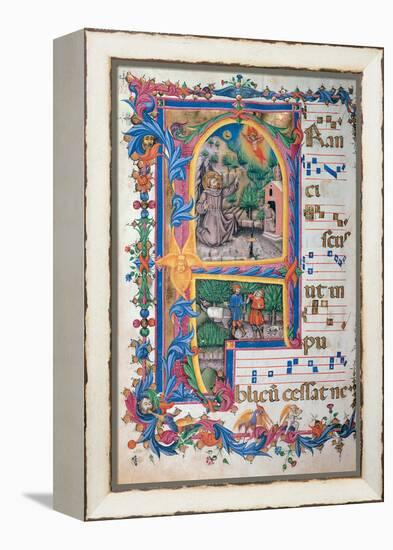 FRan
ci
scus
ut in
pu
blicũ cessat ne